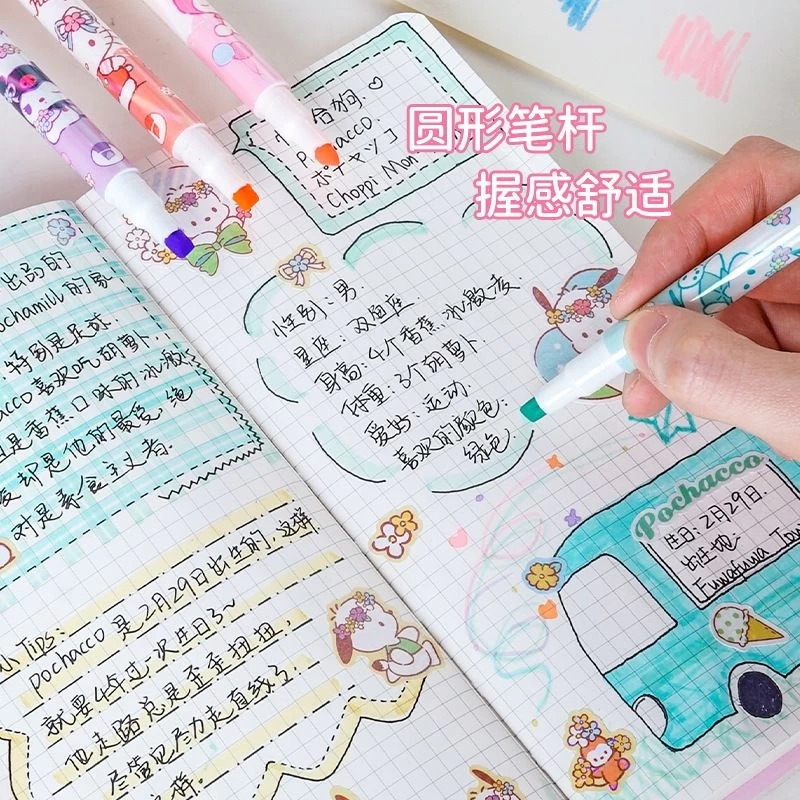 圆形笔杆
握感舒适
合狗.♡
Pochacco.
ポチャッコ
Choppi Mon
性别:男.
星座:双鱼座
身高:4个香蕉冰激凌.
体重:3个胡萝卜.
爱好:运动.
喜欢的颜色:
绿色.
Pochacco
生日:2月29日.
出生地:
Fuwafuwa Tow
出品的
chamill的易
特别是足球.
acco喜欢吃胡萝卜,
但是香蕉口味的冰激
却是他的最爱.绝
对是素食主义者.
小Tips:
pochacco是2月29日出生的,这样
就要4年过一次生日了~
他走路总是歪歪扭扭,
尽管已尽力走直线了.